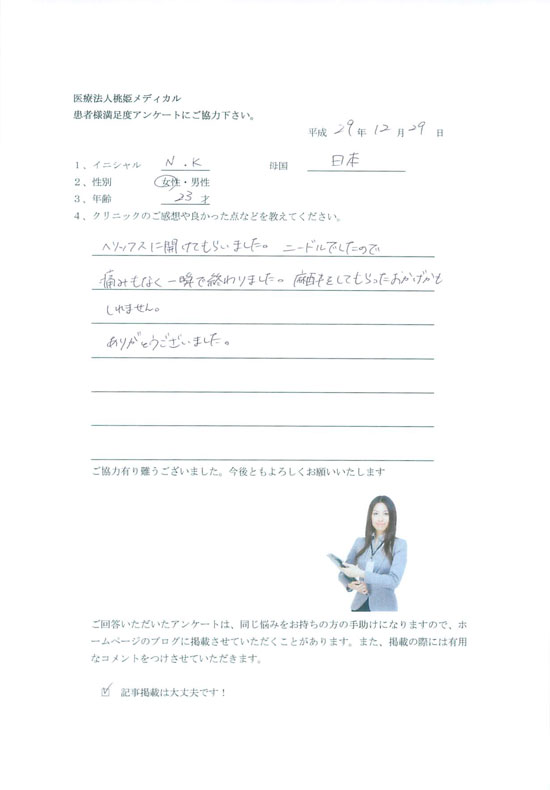 医療法人桃姫メディカル
患者様満足度アンケートにご協力下さい。
平成 29 年 12 月 29 日
1、イニシャル N.K 母国 日本
2、性別 女性・男性
3、年齢 23才
4、クリニックのご感想や良かった点などを教えてください。
ヘリックスに開けてもらいました。 ニードルでしたので
痛みもなく一瞬で終わりました。麻酔をしてもらったおかげかも
しれません。
ありがとうございました。
ご協力有り難うございました。今後ともよろしくお願いいたします
ご回答いただいたアンケートは、同じ悩みをお持ちの方の手助けになりますので、ホ
ームページのブログに掲載させていただくことがあります。また、掲載の際には有用
なコメントをつけさせていただきます。
☑ 記事掲載は大丈夫です！